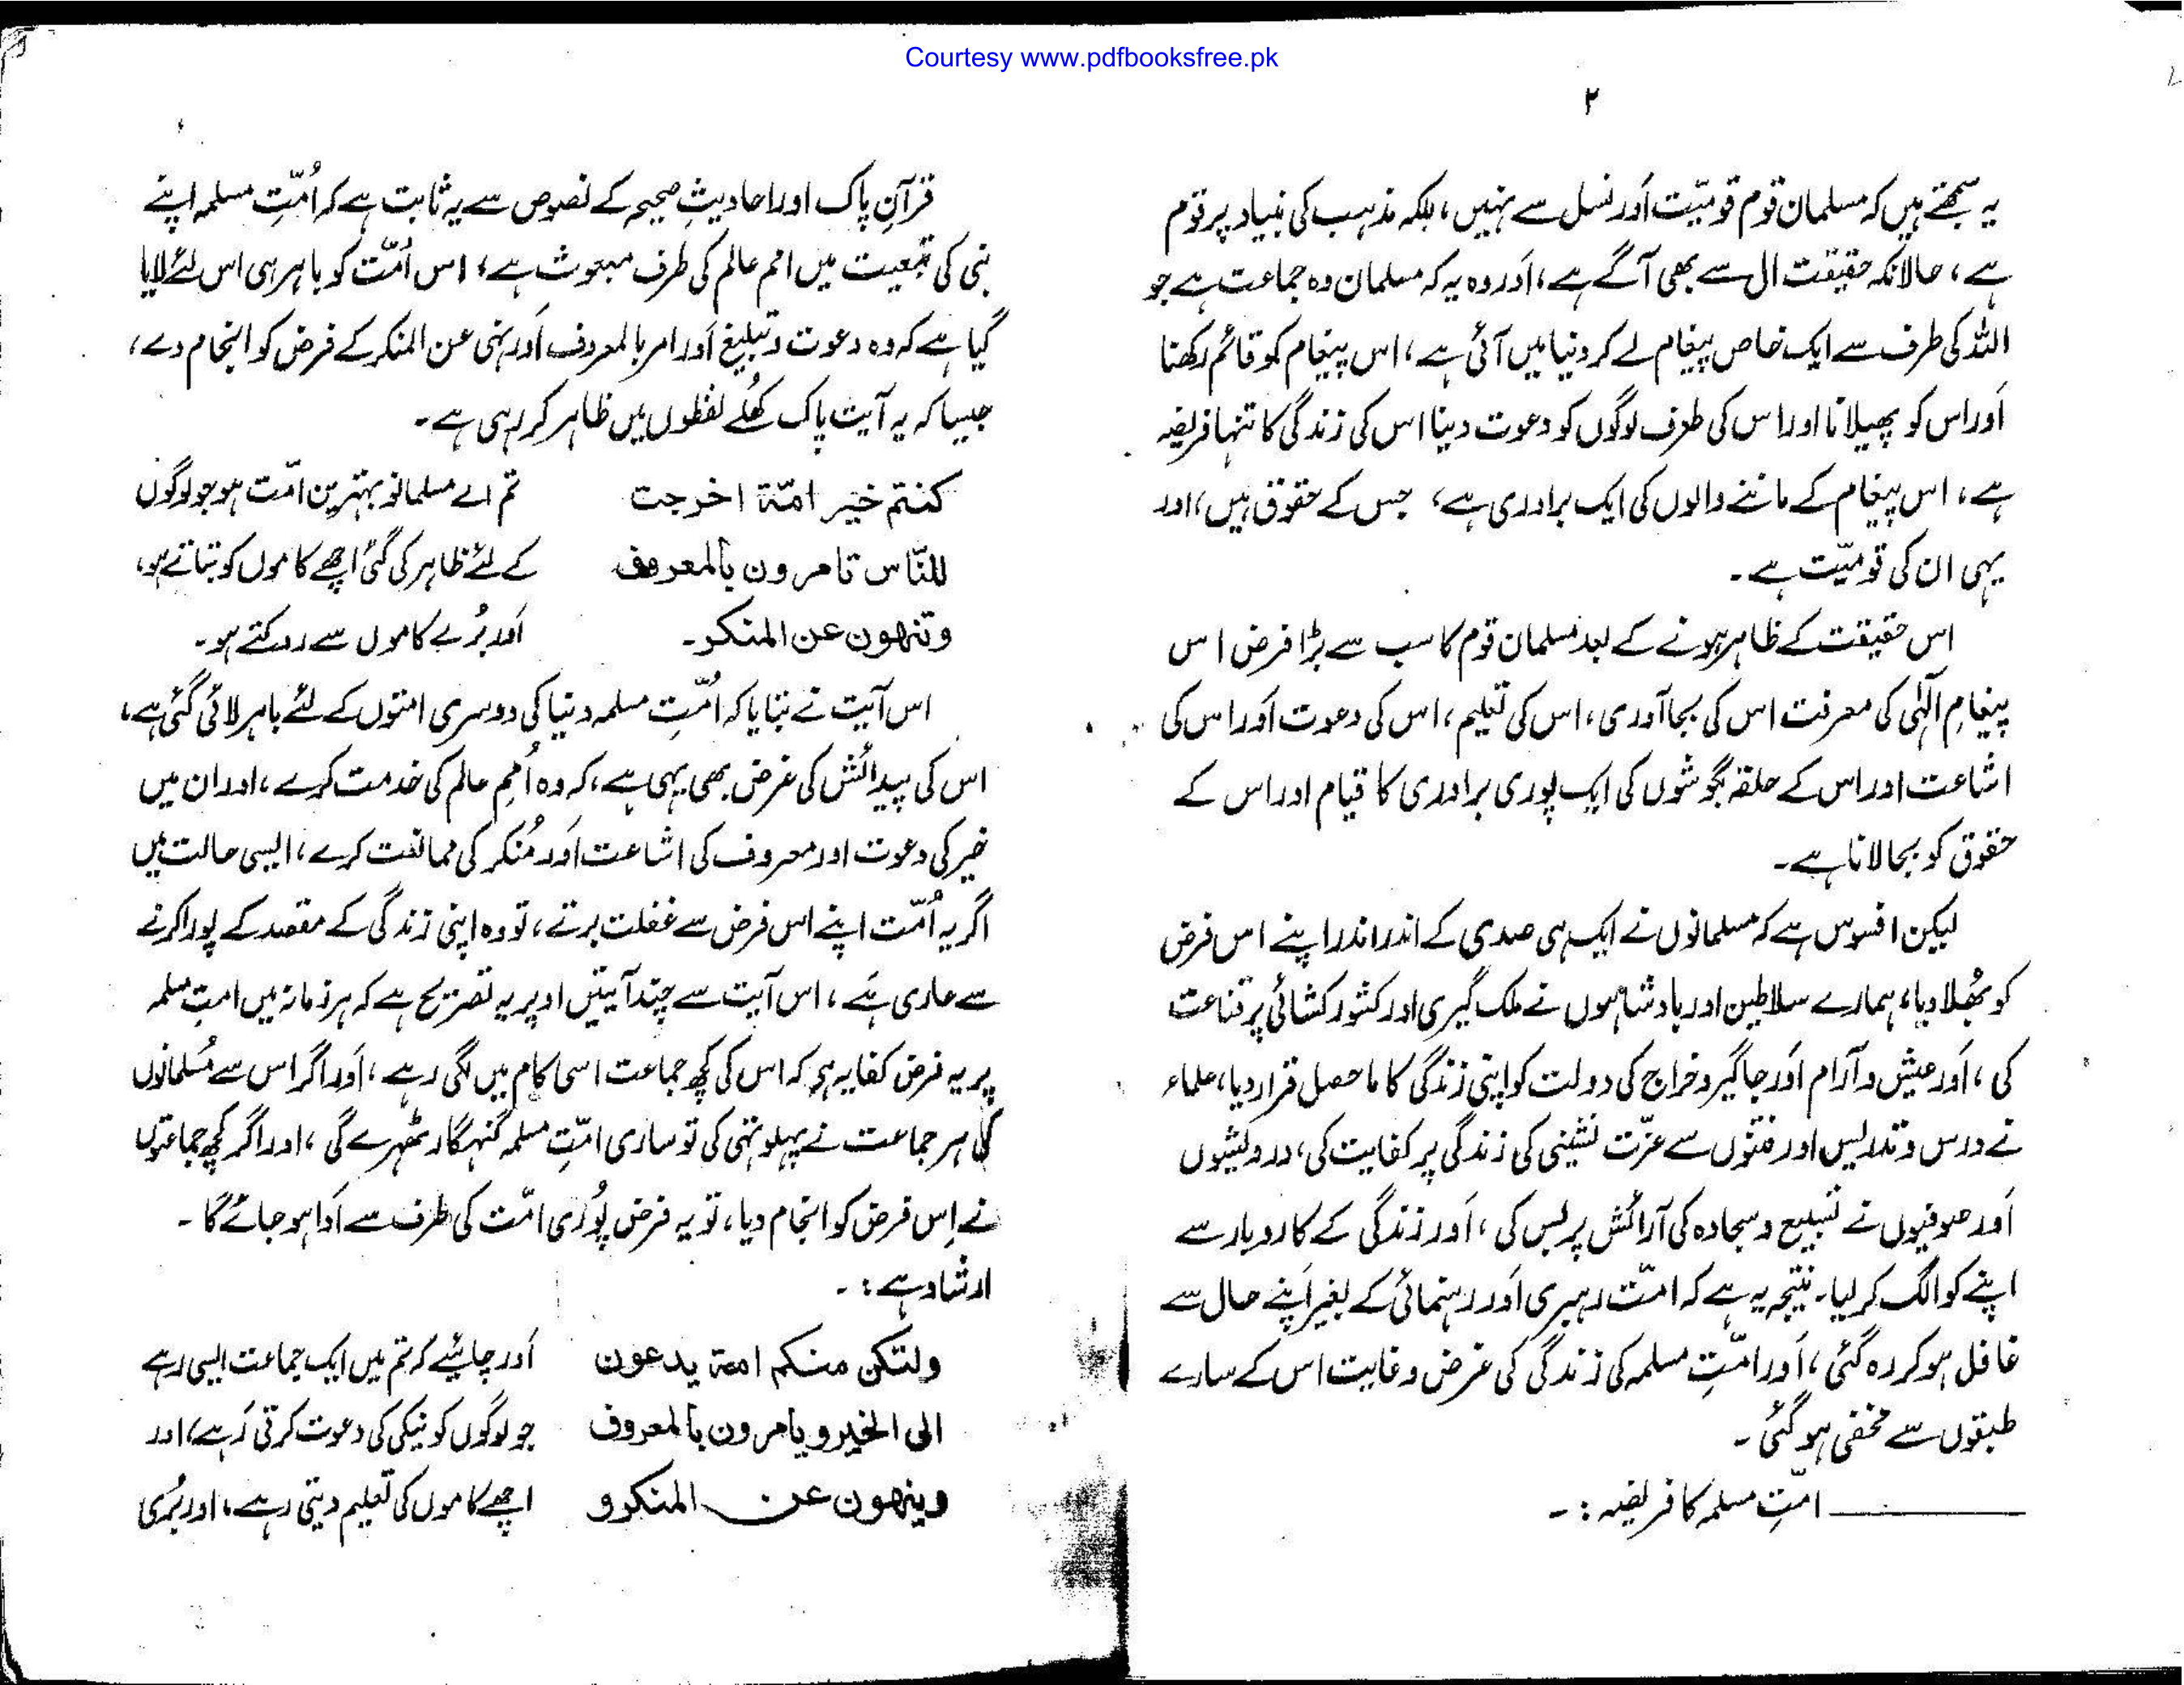 Courtesy www.pdfbooksfree.pk
۲
یہ سمجھتے ہیں کہ مسلمان قوم قومیّت اَور نسل سے نہیں، بلکہ مذہب کی بنیاد پر قوم
ہے، حالانکہ حقیقت اس سے بھی آگے ہے، اَور وہ یہ کہ مسلمان وہ جماعت ہے جو
اللہ کی طرف سے ایک خاص پیغام لے کر دنیا میں آئی ہے، اس پیغام کو قائم رکھنا
اَور اس کو پھیلانا اور اس کی طرف لوگوں کو دعوت دینا اس کی زندگی کا تنہا فریضہ
ہے، اس پیغام کے ماننے والوں کی ایک برادری ہے، جس کے حقوق ہیں، اور
یہی ان کی قومیّت ہے۔
اس حقیقت کے ظاہر ہونے کے بعد مسلمان قوم کا سب سے بڑا فرض اس
پیغامِ الٰہی کی معرفت اس کی بجا آوری، اس کی تعلیم، اس کی دعوت اَور اس کی
اشاعت اور اس کے حلقہ بگوشوں کی ایک پوری برادری کا قیام اور اس کے
حقوق کو بجا لانا ہے۔
لیکن افسوس ہے کہ مسلمانوں نے ایک ہی صدی کے اندر اندر اپنے اس فرض
کو بُھلا دیا، ہمارے سلاطین اور بادشاہوں نے ملک گیری اور کشور کشائی پر قناعت
کی، اَور عیش و آرام اَور جاگیر و خراج کی دولت کو اپنی زندگی کا ماحصل قرار دیا، علماء
نے درس و تدریس اور فتنوں سے عزّت نشینی کی زندگی پر کفایت کی، درویشوں
اَور صوفیوں نے تسبیح و سجادہ کی آرائش پر بس کی، اَور زندگی کے کاروبار سے
اپنے کو الگ کر لیا۔ نتیجہ یہ ہے کہ امّت رہبری اَور رہنمائی کے بغیر اَپنے حال سے
غافل ہو کر رہ گئی، اَور امّتِ مسلمہ کی زندگی کی غرض و غایت اس کے سارے
طبقوں سے مخفی ہو گئی۔
امّتِ مسلمہ کا فریضہ :۔
قرآنِ پاک اور احادیثِ صحیحہ کے نصوص سے یہ ثابت ہے کہ اُمّتِ مسلمہ اپنے
نبی کی تبعیت میں امم عالم کی طرف مبعوث ہے، اس اُمّت کو باہر ہی اس لئے لایا
گیا ہے کہ وہ دعوت و تبلیغ اَور امر بالمعروف اَور نہی عن المنکر کے فرض کو انجام دے،
جیسا کہ یہ آیت پاک کُھلے لفظوں میں ظاہر کر رہی ہے۔
کنتم خیر امّۃ اخرجت تم اے مسلمانو بہترین امّت ہو جو لوگوں
للنّاس تامرون بالمعروف کے لئے ظاہر کی گئی اچھے کاموں کو بتاتے ہو،
وتنہون عن المنکر۔ اَور بُرے کاموں سے روکتے ہو۔
اس آیت نے بتایا کہ اُمّتِ مسلمہ دنیا کی دوسری امتوں کے لئے باہر لائی گئی ہے،
اس کی پیدائش کی غرض بھی یہی ہے، کہ وہ اُممِ عالم کی خدمت کرے، اور ان میں
خیر کی دعوت اور معروف کی اشاعت اَور مُنکر کی ممانعت کرے، ایسی حالت میں
اگر یہ اُمّت اپنے اس فرض سے غفلت برتے، تو وہ اپنی زندگی کے مقصد کے پورا کرنے
سے عاری ہَے، اس آیت سے چند آیتیں اوپر یہ تصریح ہے کہ ہر زمانہ میں امتِ مسلمہ
پر یہ فرض کفایہ ہے کہ اس کی کچھ جماعت اسی کام میں لگی رہے، اَور اگر اس سے مُسلمانوں
کی ہر جماعت نے پہلو تہی کی تو ساری امّتِ مسلمہ گنہگار ٹھہرے گی، اور اگر کچھ جماعتوں
نے اِس فرض کو انجام دیا، تو یہ فرض پُوری امّت کی طرف سے اَدا ہو جائے گا۔
ارشاد ہے :۔
ولتکن منکم امۃ یدعون اَور چاہیئے کہ تم میں ایک جماعت ایسی رہے
الی الخیر و یامرون بالمعروف جو لوگوں کو نیکی کی دعوت کرتی رَہے، اور
وینہون عن المنکر و اچھے کاموں کی تعلیم دیتی رہے، اور بُری